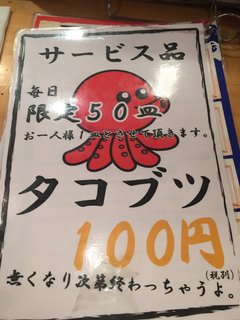 サービス品
毎日
限定50皿
お一人様1皿とさせて頂きます。
タコブツ
100円
(税別)
無くなり次第終わっちゃうよ。